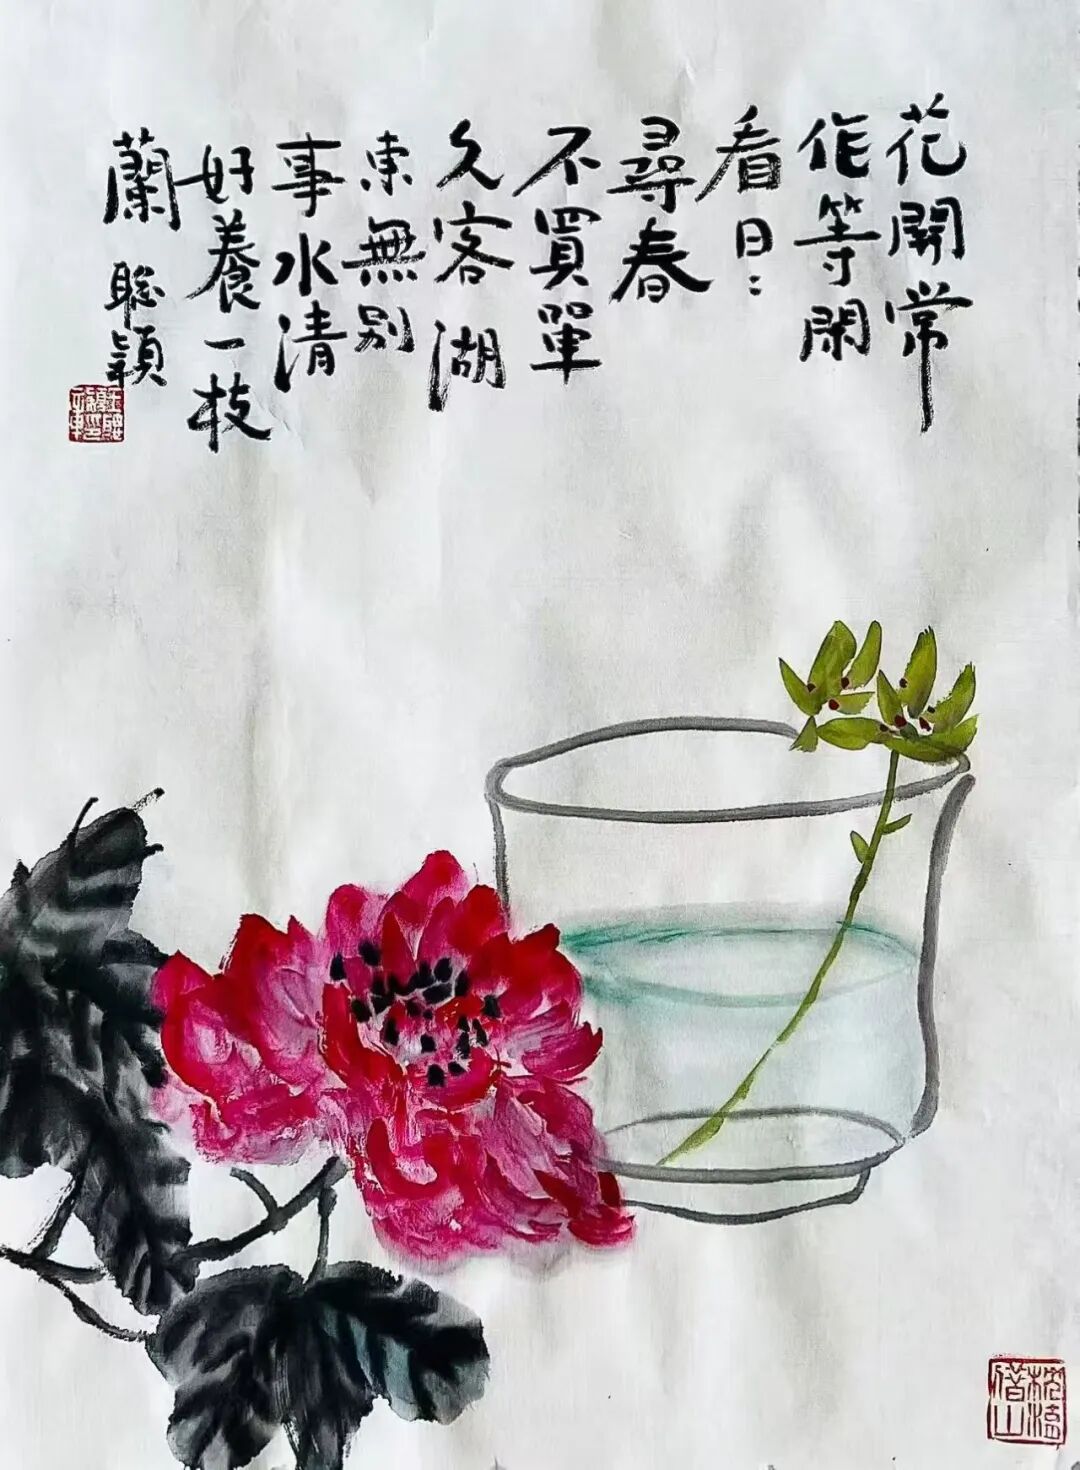 花開常
作等閑
看日〻
尋春
不買單
久客湖
東無别
事水清
好養一枝
蘭 聪穎